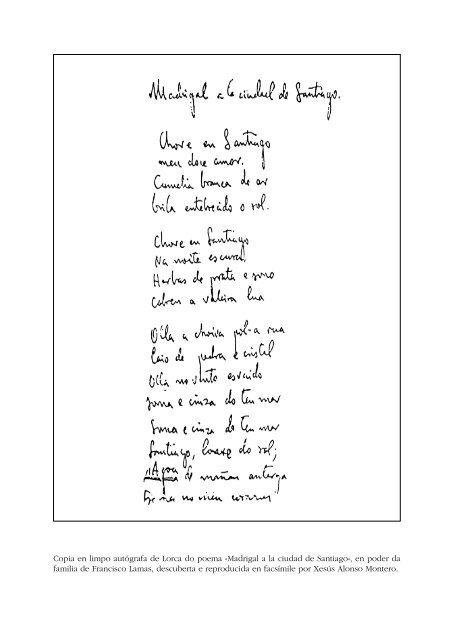 Madrigal a la ciudad de Santiago.
Chove en Santiago
meu doce amor.
Camelia branca do ar
brila entebrecido o sol.
Chove en Santiago
Na noite escura.
Herbas de prata e sono
cobren a valeira lua
Olla a choiva pol-a rua
laio de pedra e cristal
Olla no vento esvaido
soma e cinza do teu mar
Soma e cinza do teu mar
Santiago, lonxe do sol;
Agoa de mañan anterga
trema no meu corazon
Copia en limpo autógrafa de Lorca do poema «Madrigal a la ciudad de Santiago», en poder da
familia de Francisco Lamas, descuberta e reproducida en facsímile por Xesús Alonso Montero.